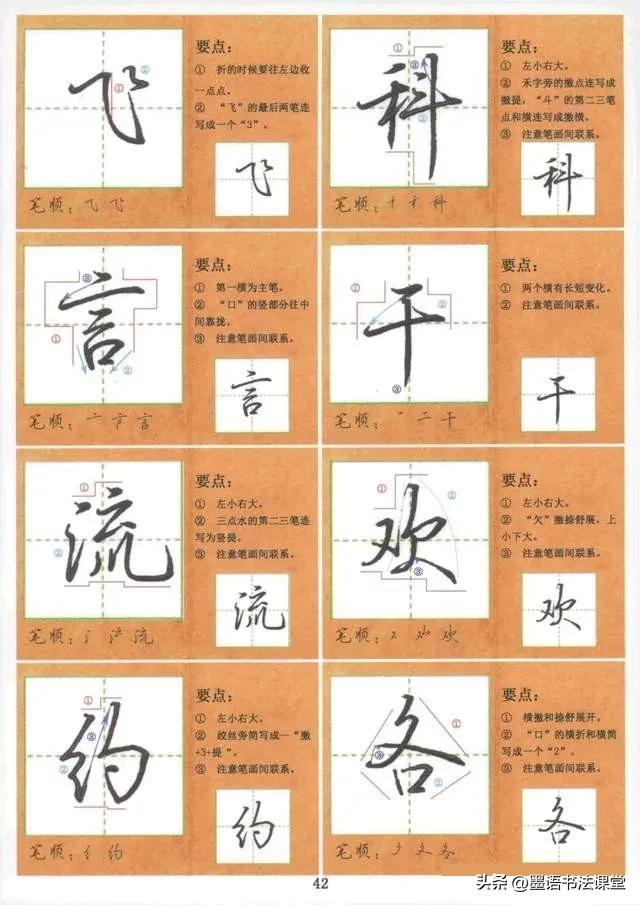 飞
要点：
① 折的时候要往左边收
一点点。
② “飞”的最后两笔连
写成一个“3”。
飞
笔顺：飞 飞
科
要点：
① 左小右大。
② 禾字旁的撇点连写成
撇提，“斗”的第二三笔
点和横连写成撇横。
③ 注意笔画间联系。
科
笔顺：千 禾 科
言
要点：
① 第一横为主笔。
② “口”的竖部分往中
间靠拢。
③ 注意笔画间联系。
言
笔顺：亠 言 言
干
要点：
① 两个横有长短变化。
② 注意笔画间联系。
干
笔顺：一 二 干
流
要点：
① 左小右大。
② 三点水的第二三笔连
写为竖提。
③ 注意笔画间联系。
流
笔顺：氵 流 流
欢
要点：
① 左小右大。
② “欠”撇捺舒展，上
小下大。
③ 注意笔画间联系。
欢
笔顺：又 欢 欢
约
要点：
① 左小右大。
② 绞丝旁简写成一“撇
+3+提“。
③ 注意笔画间联系。
约
笔顺：纟 约
各
要点：
① 横撇和捺舒展开。
② “口”的横折和横简
写成一个“2”。
③ 注意笔画间联系。
各
笔顺：夕 夂 各
42
头条 @墨语书法课堂